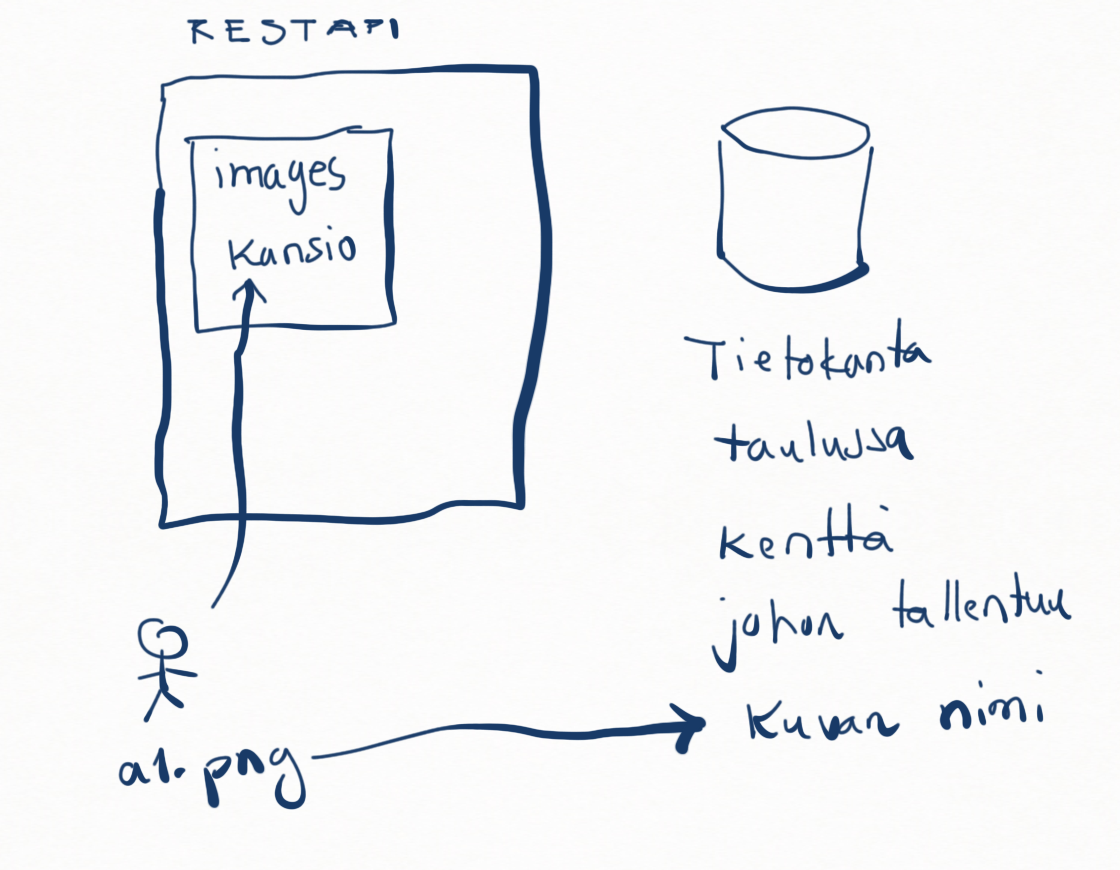 RESTAPI
images
kansio
Tietokanta
taulussa
kenttä
johon tallentuu
kuvan nimi
a1.png